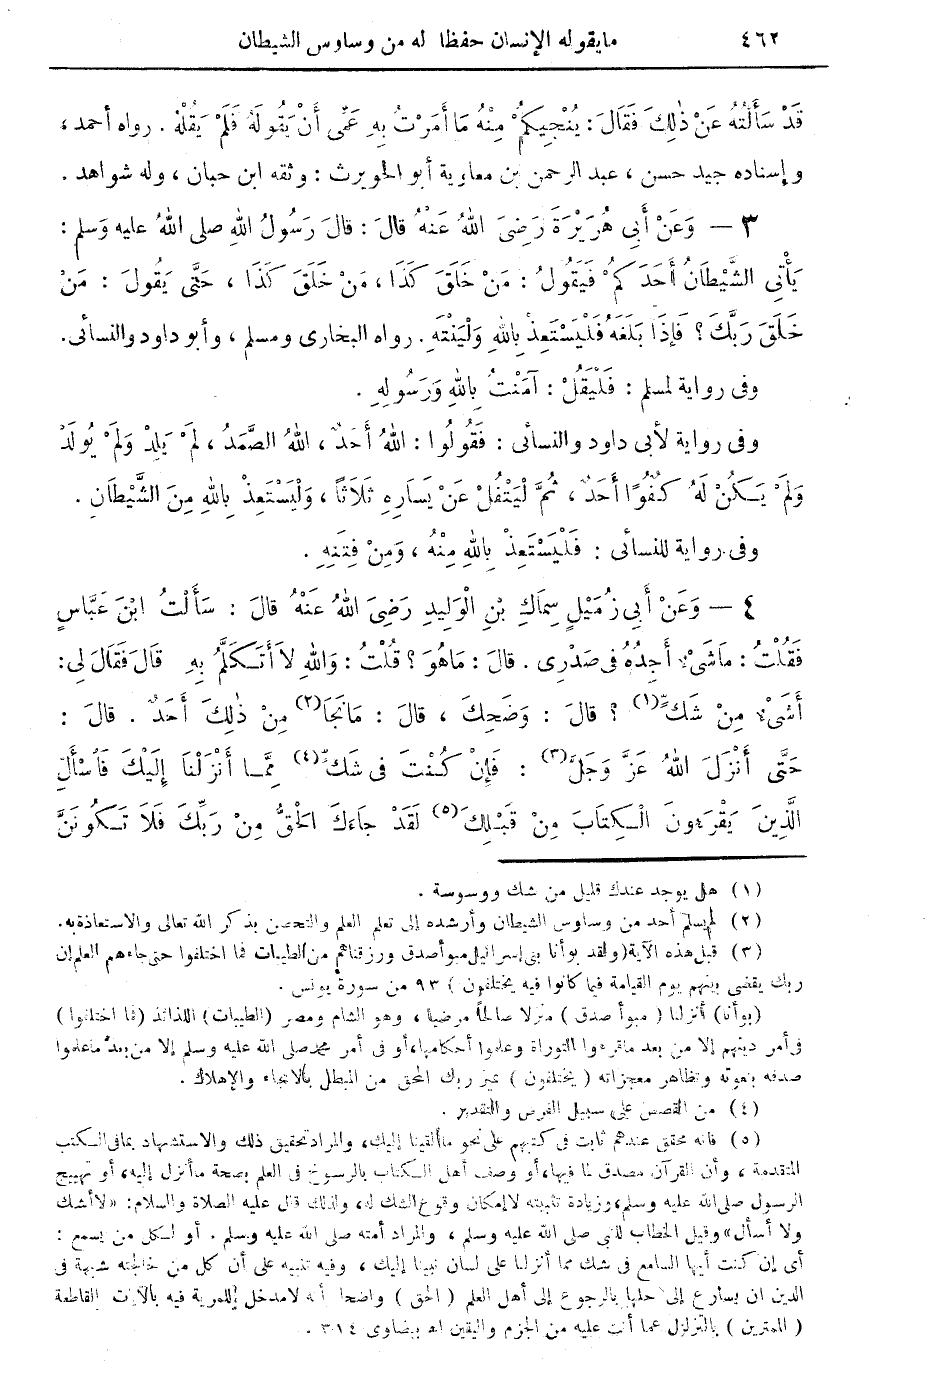 ٤٦٢ مايقوله الإنسان حفظا له من وساوس الشيطان
قَدْ سَأَلْتُهُ عَنْ ذٰلِكَ فَقَالَ : يُنْجِيكُمْ مِنْهُ مَا أَمَرْتُ بِهِ عَمِّى أَنْ يَقُولَهُ فَلَمْ يَقُلْهُ . رواه أحمد ،
وإسناده جيد حسن ، عبد الرحمن بن معاوية أبو الحويرث : وثقه ابن حبان ، وله شواهد .
٣ — وَعَنْ أَبِى هُرَيْرَةَ رَضِىَ اللهُ عَنْهُ قَالَ : قَالَ رَسُولُ اللهِ صلى اللهُ عليه وَسلم :
يَأْتِى الشَّيْطَانُ أَحَدَكُمْ فَيَقُولُ : مَنْ خَلَقَ كَذَا ، مَنْ خَلَقَ كَذَا ، حَتَّى يَقُولَ : مَنْ
خَلَقَ رَبَّكَ ؟ فَإِذَا بَلَغَهُ فَلْيَسْتَعِذْ بِاللهِ وَلْيَنْتَهِ . رواه البخارى ومسلم ، وأبو داود والنسائى.
وفى رواية لمسلم : فَلْيَقُلْ : آمَنْتُ بِاللهِ وَرَسُولِهِ .
وفى رواية لأبى داود والنسائى : فَقُولُوا : اللهُ أَحَدٌ ، اللهُ الصَّمَدُ ، لَمْ يَلِدْ وَلَمْ يُولَدْ
وَلَمْ يَكُنْ لَهُ كُفُوًا أَحَدٌ ، ثُمَّ لْيَتْفُلْ عَنْ يَسَارِهِ ثَلَاثًا ، وَلْيَسْتَعِذْ بِاللهِ مِنَ الشَّيْطَانِ .
وفى رواية للنسائى : فَلْيَسْتَعِذْ بِاللهِ مِنْهُ ، وَمِنْ فِتَنِهِ .
٤ — وَعَنْ أَبِى زُمَيْلٍ سِمَاكِ بْنِ الْوَلِيدِ رَضِىَ اللهُ عَنْهُ قَالَ : سَأَلْتُ ابْنَ عَبَّاسٍ
فَقُلْتُ : مَاشَىْءٌ أَجِدُهُ فى صَدْرِى . قالَ : مَاهُوَ ؟ قُلْتُ : وَاللهِ لاَ أَتَكَلَّمُ بِهِ قَالَ فَقَالَ لِى:
أَشَىْءٌ مِنْ شَكٍّ(١) ؟ قالَ : وَضَحِكَ ، قالَ : مَا نَجَا(٢) مِنْ ذٰلِكَ أَحَدٌ . قالَ :
حَتَّى أَنْزَلَ اللهُ عَزَّ وَجَلَّ(٣) : فَإِنْ كُنْتَ فى شَكٍّ(٤) مِمَّا أَنْزَلْنَا إِلَيْكَ فَاسْأَلِ
الَّذِينَ يَقْرَءُونَ الْكِتَابَ مِنْ قَبْلِكَ(٥) لَقَدْ جَاءَكَ الْحَقُّ مِنْ رَبِّكَ فَلَا تَكُونَنَّ
(١) هل يوجد عندك قليل من شك ووسوسة .
(٢) لم يسلم أحد من وساوس الشيطان وأرشده إلى تعلم العلم والتحصن بذكر الله تعالى والاستعاذة به.
(٣) قبل هذه الآية (ولقد بوأنا بنى إسرائيل مبوأ صدق ورزقناهم من الطيبات فما اختلفوا حتى جاءهم العلم إن
ربك يقضى بينهم يوم القيامة فيما كانوا فيه يختلفون ) ٩٣ من سورة يونس .
(بوأنا) أنزلنا ( مبوأ صدق ) منزلا صالحا مرضيا ، وهو الشام ومصر (الطيبات) اللذائذ (فما اختلفوا )
فى أمر دينهم إلا من بعد ماقرءوا التوراة وعلموا أحكامها، أو فى أمر محمد صلى الله عليه وسلم إلا من بعد ماعلموا
صدقه بنعوته وتظاهر معجزاته ( يختلفون ) يميز ربك المحق من المبطل بالانجاء والإهلاك .
(٤) من القصص على سبيل الفرض والتقدير .
(٥) فانه محقق عندهم ثابت فى كتبهم على نحو ماألقينا إليك، والمراد تحقيق ذلك والاستشهاد بما فى الكتب
المتقدمة ، وأن القرآن مصدق لما فيها، أو وصف أهل الكتاب بالرسوخ فى العلم بصحة ماأنزل إليه، أو تهييج
الرسول صلى الله عليه وسلم، وزيادة تثبيته لا إمكان وقوع الشك له، ولذلك قال عليه الصلاة والسلام: «لاأشك
ولا أسأل» وقيل الخطاب للنبى صلى الله عليه وسلم ، والمراد أمته صلى الله عليه وسلم . أو لكل من يسمع :
أى إن كنت أيها السامع فى شك مما أنزلنا على لسان نبينا إليك ، وفيه تنبيه على أن كل من خالجته شبهة فى
الدين ان يسارع إلى حلها بالرجوع إلى أهل العلم ( الحق ) واضحا أنه لامدخل للمرية فيه بالآيات القاطعة
( الممترين ) بالتزلزل عما أنت عليه من الجزم واليقين اه بيضاوى ٣١٤ .